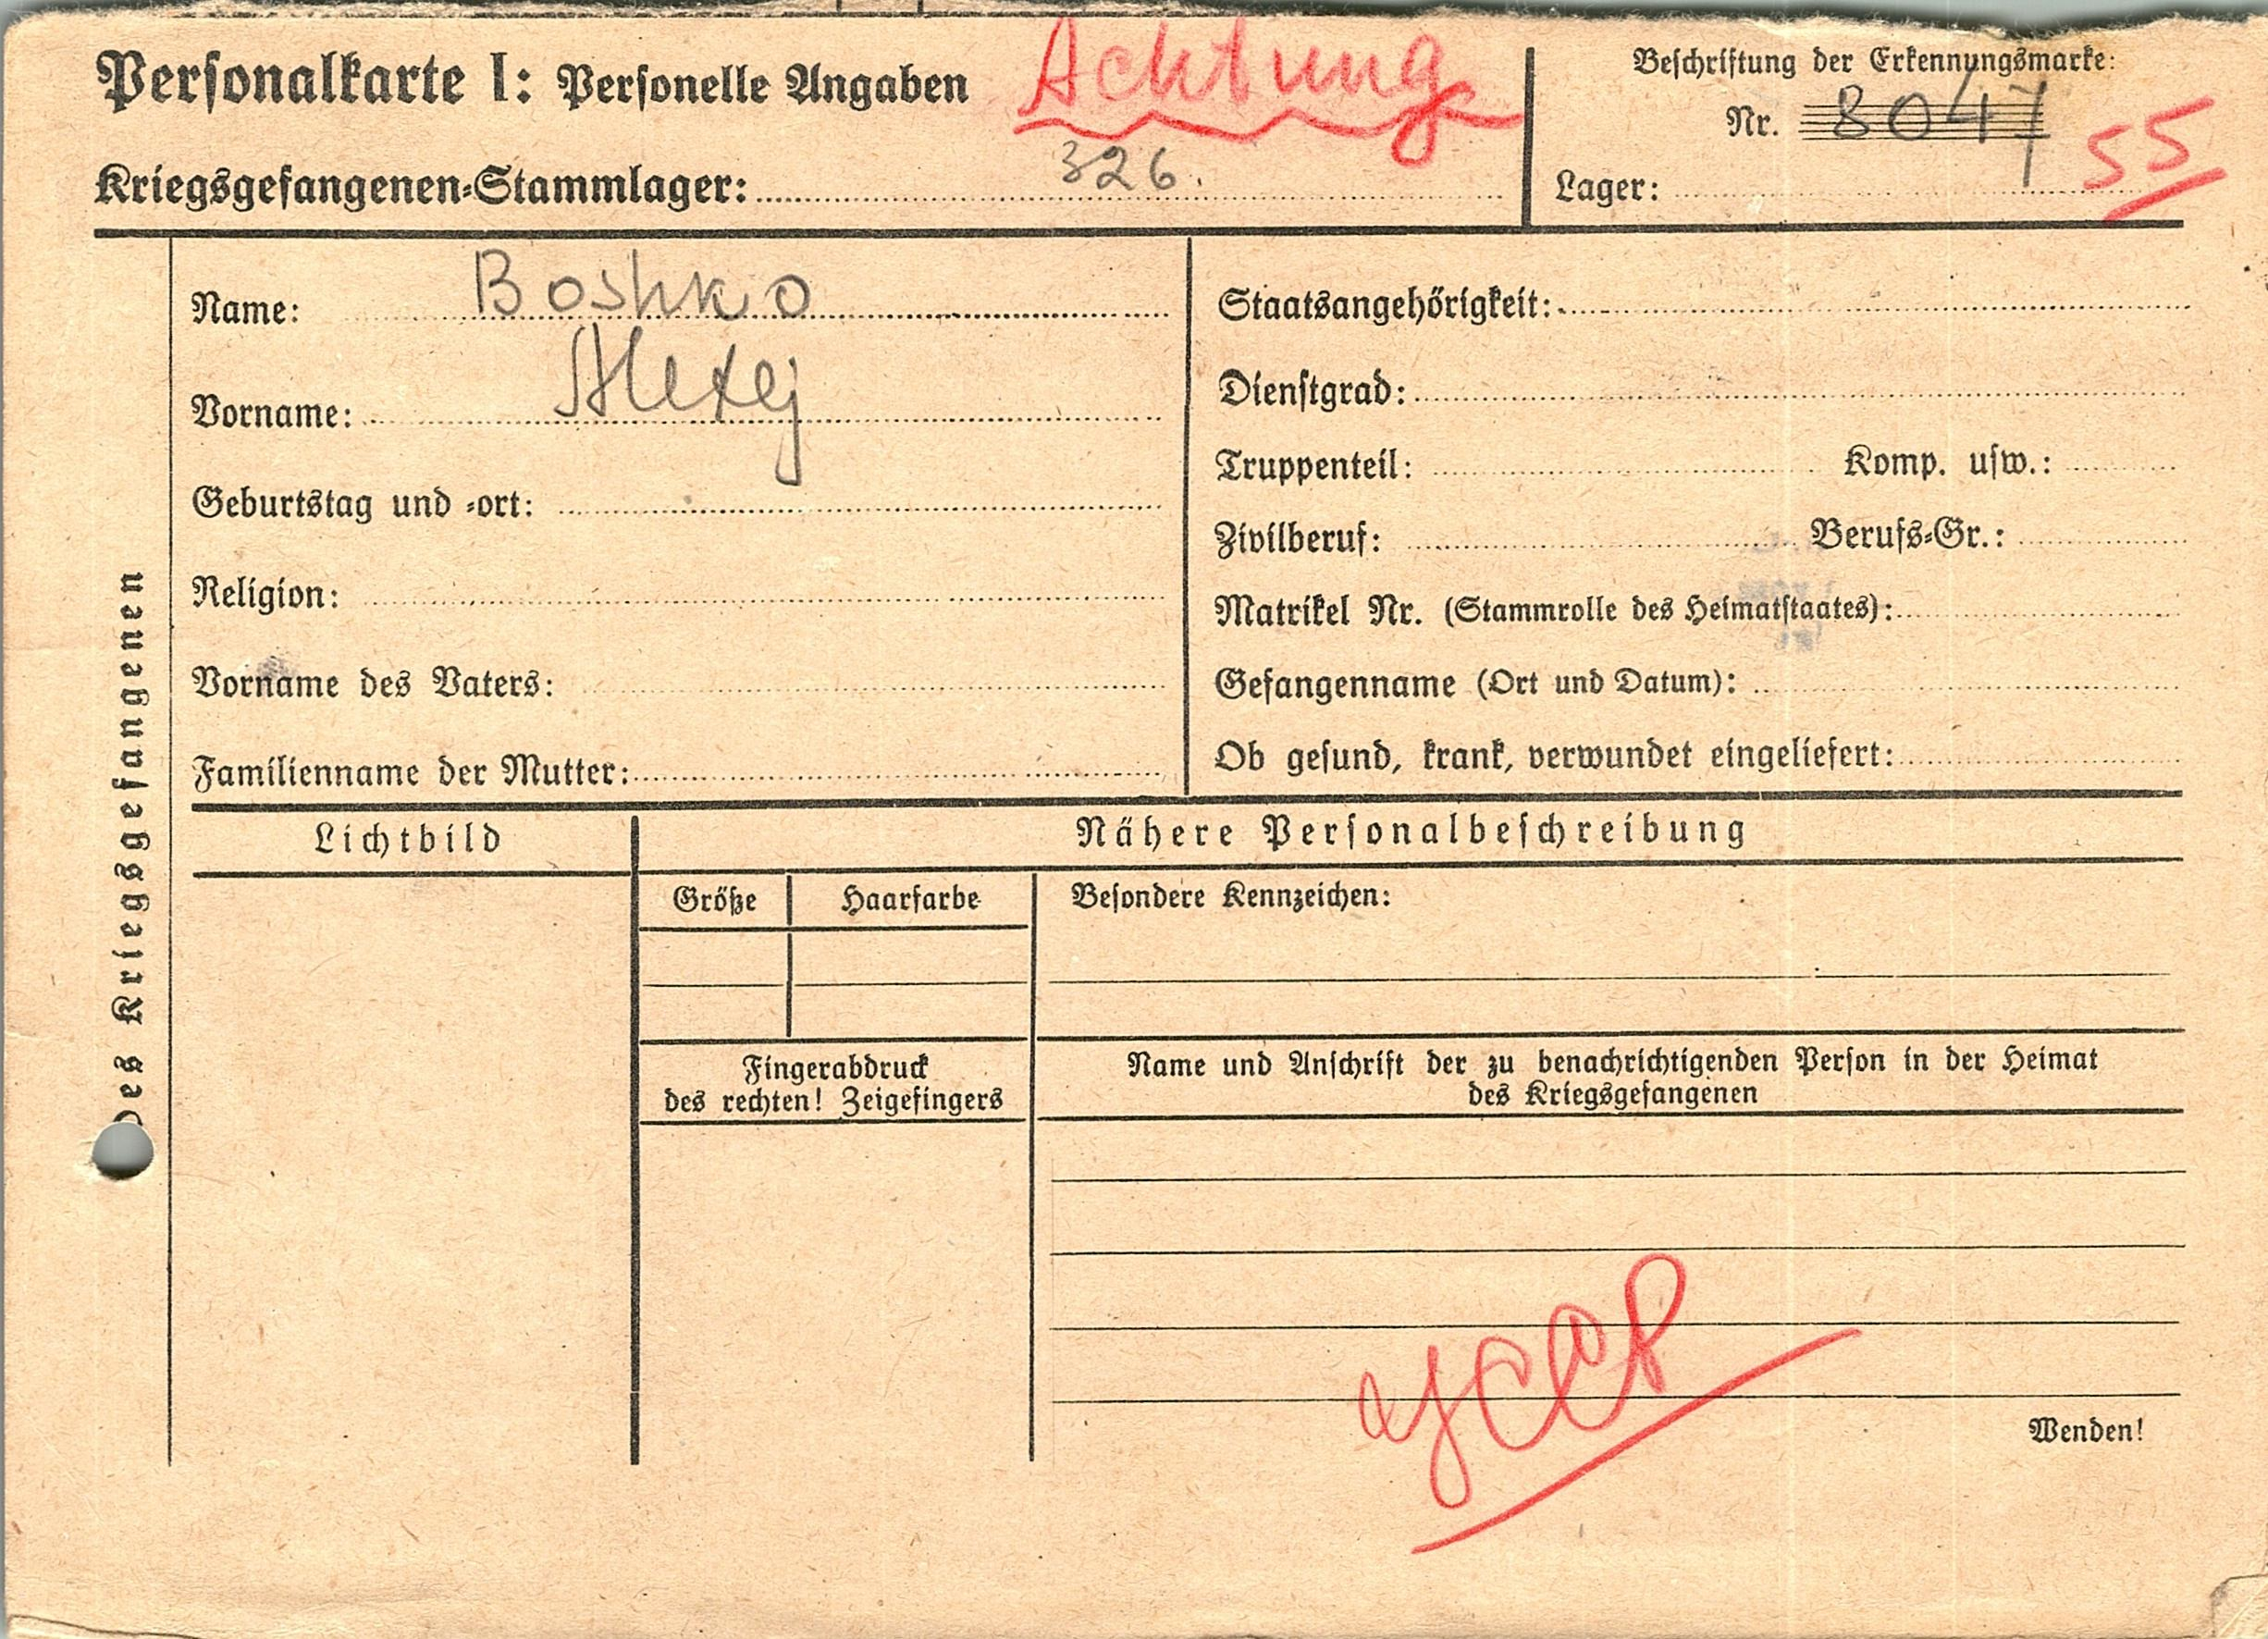 Personalkarte I: Personelle Angaben
Achtung
Kriegsgefangenen-Stammlager: 326.
Beschriftung der Erkennungsmarke:
Nr. 8047
Lager:
55
Des Kriegsgefangenen
Name: Boshko
Vorname: Alexej
Geburtstag und -ort:
Religion:
Vorname des Vaters:
Familienname der Mutter:
Staatsangehörigkeit:
Dienstgrad:
Truppenteil: Komp. usw.:
Zivilberuf: Berufs-Gr.:
Matrikel Nr. (Stammrolle des Heimatstaates):
Gefangenname (Ort und Datum):
Ob gesund, krank, verwundet eingeliefert:
Lichtbild
Nähere Personalbeschreibung
Größe Haarfarbe
Besondere Kennzeichen:
Fingerabdruck
des rechten! Zeigefingers
Name und Anschrift der zu benachrichtigenden Person in der Heimat
des Kriegsgefangenen
УССР
Wenden!